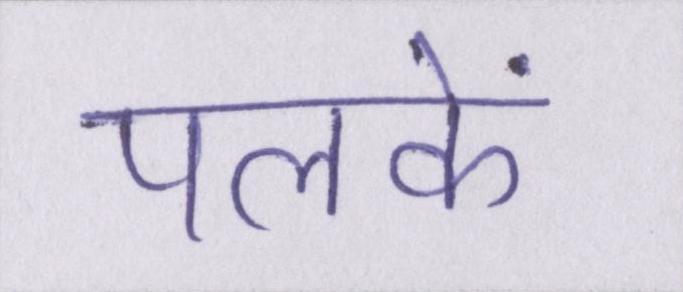 पलकें